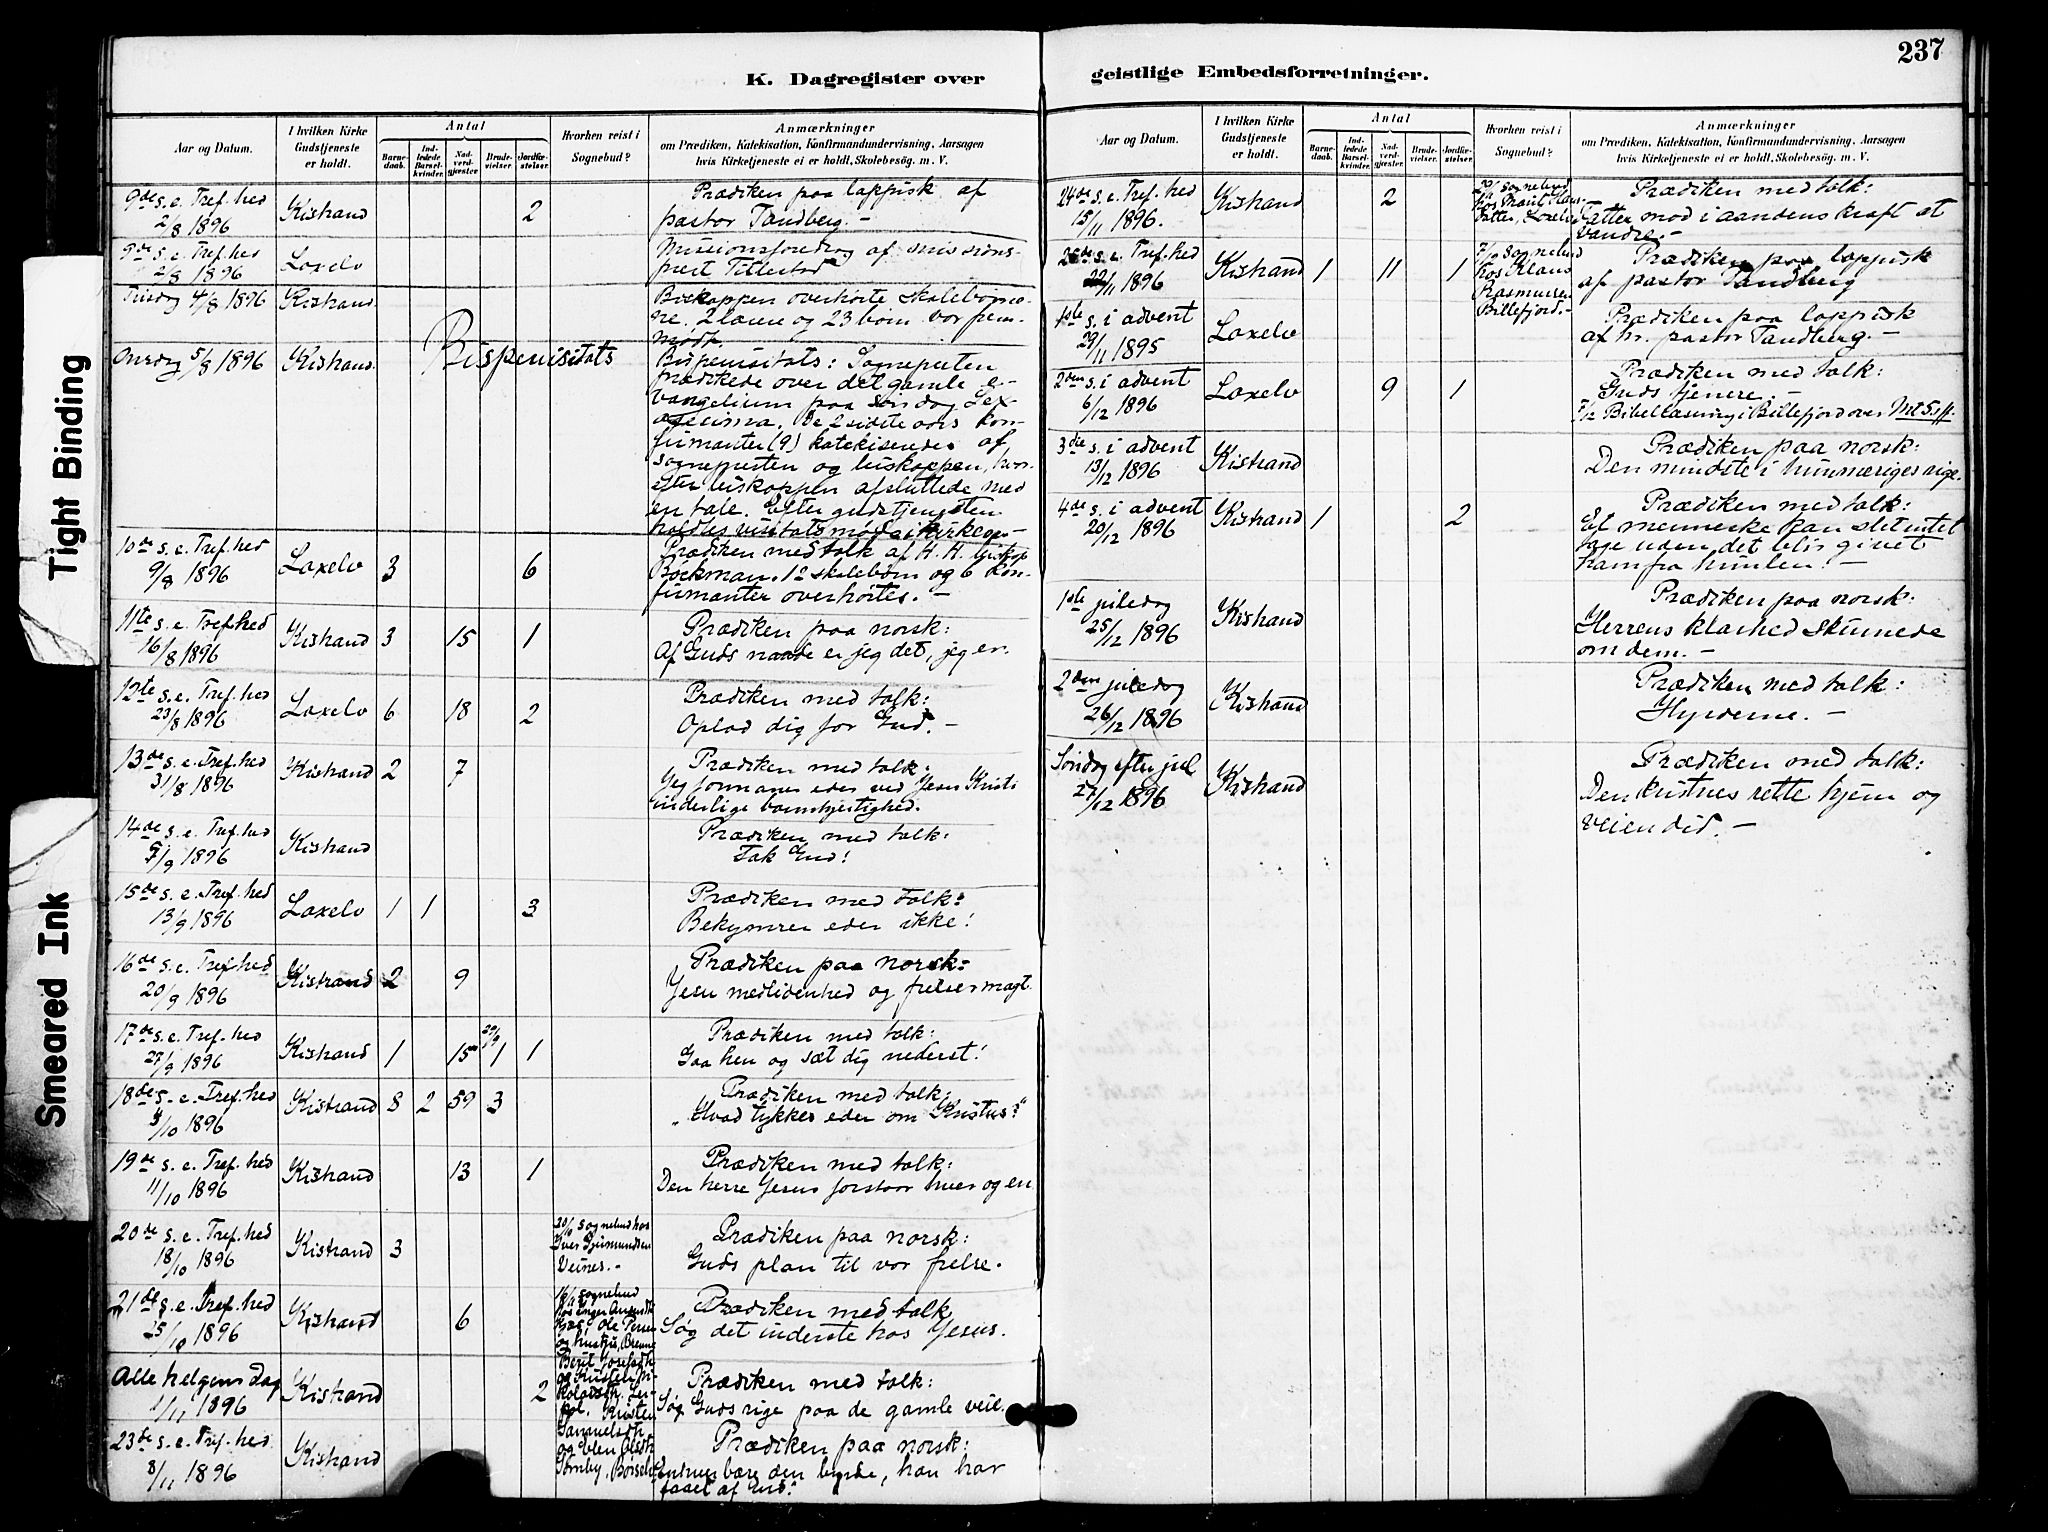 237
K. Dagregister over
geistlige Embedsforretninger.
Tight Binding
Smeared Ink
Aar og Datum.
I hvilken Kirke Gudstjeneste er holdt.
Antal
Barnedaab.
Indledede Barselkvinder.
Nadverdgjester
Brudevielser.
Jordfæstelser.
Hvorhen reist i Sognebud?
Anmærkninger
om Prædiken, Katekisation, Konfirmandundervisning, Aarsagen
hvis Kirketjeneste ei er holdt, Skolebesøg. m. V.
9de s. e. Tref. hed
2/8 1896 Kistrand 2
Prædiken paa lappisk af
pastor Tandberg. –
9de s. e. Tref. hed
2/8 1896 Laxelv
Missionsforedrag af missions-
prest Tittestad
Tirsdag 4/8 1896 Kistrand.
Biskoppen overhørte skolebørne-
ne. 2 lærere og 23 børn var frem-
mødt.
Onsdag 5/8 1896 Kistrand. Bispevisitats
Bispevisitats: Sognepresten
prædikede over det gamle e-
vangelium paa søndag Sex-
agesima. De 2 sidste aars kon-
firmanter (9) katekiseredes af
sognepresten og biskoppen, hvor-
efter biskoppen afsluttede med
en tale. Efter gudstjenesten
holdtes visitatsmøde i kirken –
10de s. e. Tref. hed
9/8 1896 Laxelv 3 6
Prædiken med tolk af H. H. biskop
Bøckman. 12 skolebørn og 6 kon-
firmanter overhørtes. –
11te s. e. Tref. hed
16/8 1896 Kistrand 3 15 1
Prædiken paa norsk:
Af Guds naade er jeg det, jeg er.
12te s. e. Tref. hed
23/8 1896 Laxelv 6 18 2
Prædiken med tolk:
Oplad dig for Gud. –
13de s. e. Tref. hed
31/8 1896 Kistrand 2 7
Prædiken med tolk:
Jeg formaner eder ved Jesu Kristi
inderlige barmhjertighed.
14de s. e. Tref. hed
/9 1896 Kistrand
Prædiken med tolk:
Tak Gud!
15de s. e. Tref. hed
13/9 1896 Laxelv 1 1 3
Prædiken med tolk:
Bekymrer eder ikke!
16de s. e. Tref. hed
20/9 1896 Kistrand 2 9
Prædiken paa norsk:
Jesu medlidenhed og frelsermagt.
17de s. e. Tref. hed
27/9 1896 Kistrand 1 15 1 1
Prædiken med tolk:
Gaa hen og sæt dig nederst!
18de s. e. Tref. hed
4/10 1896 Kistrand 8 2 59 3
Prædiken med tolk:
„Hvad tykkes eder om Kristus?“
19de s. e. Tref. hed
11/10 1896 Kistrand 13 1
Prædiken med tolk:
Den herre Jesus forstaar hver og en
20de s. e. Tref. hed
18/10 1896 Kistrand 3
20/ sognebud hos
Iver
Veines. –
Prædiken paa norsk:
Guds plan til vor frelse.
21de s. e. Tref. hed
25/10 1896 Kistrand 6
sognebud
hos Inger
Ole Persen
og hustru, Brenna
Berit Josefsdtr.
og
Kristen
Samuelsdtr.
og Elen Olsdtr.
Børselv.
Prædiken med tolk
Søg det inderste hos Jesus.
Allehelgensdag
1/11 1896 Kistrand 2
Prædiken med tolk:
Søg Guds rige paa de gamle veie.
23de s. e. Tref. hed.
8/11 1896 Kistrand
Prædiken paa norsk:
Enhver bære den byrde, han har
faaet af Gud.
Aar og Datum.
I hvilken Kirke Gudstjeneste er holdt.
Antal
Barnedaab.
Indledede Barselkvinder.
Nadverdgjester.
Brudevielser.
Jordfæstelser.
Hvorhen reist i Sognebud?
Anmærkninger
om Prædiken, Katekisation, Konfirmandundervisning, Aarsagen
hvis Kirketjeneste ei er holdt, Skolebesøg. m. V.
24de s. e. Tref. hed
15/11 1896. Kistrand 2
sognebud
hos Marit
Laxelv
Prædiken med tolk:
Fatter mod i aandens kraft at
vandre. –
s. e. Tref. hed
22/11 1896 Kistrand 1 11 1
sognebud
hos Klaus
Rasmussen
Billefjord. –
Prædiken paa lappisk
af pastor Tandberg
1ste s. i advent
29/11 1895 Laxelv
Prædiken paa lappisk
af hr. pastor Tandberg. –
2den s. i advent
6/12 1896 Laxelv 9 1
Prædiken med tolk:
Guds tjenere –
7/12 Bibellæsning i Billefjord over Mt 5 ff.
3die s. i advent
13/12 1896 Kistrand
Prædiken paa norsk:
Den mindste i himmeriges rige.
4de s. i advent
20/12 1896 Kistrand 1 2
Prædiken med tolk:
Et menneske kan slet intet
tage uden det blir givet
ham fra himlen. –
1ste juledag
25/12 1896 Kistrand
Prædiken paa norsk:
Herrens klarhed skinnede
om dem. –
2den juledag
26/12 1896 Kistrand
Prædiken med tolk:
Hyrderne. –
Søndag efter jul
27/12 1896 Kistrand
Prædiken med tolk:
Den kristnes rette hjem og
veien did. –